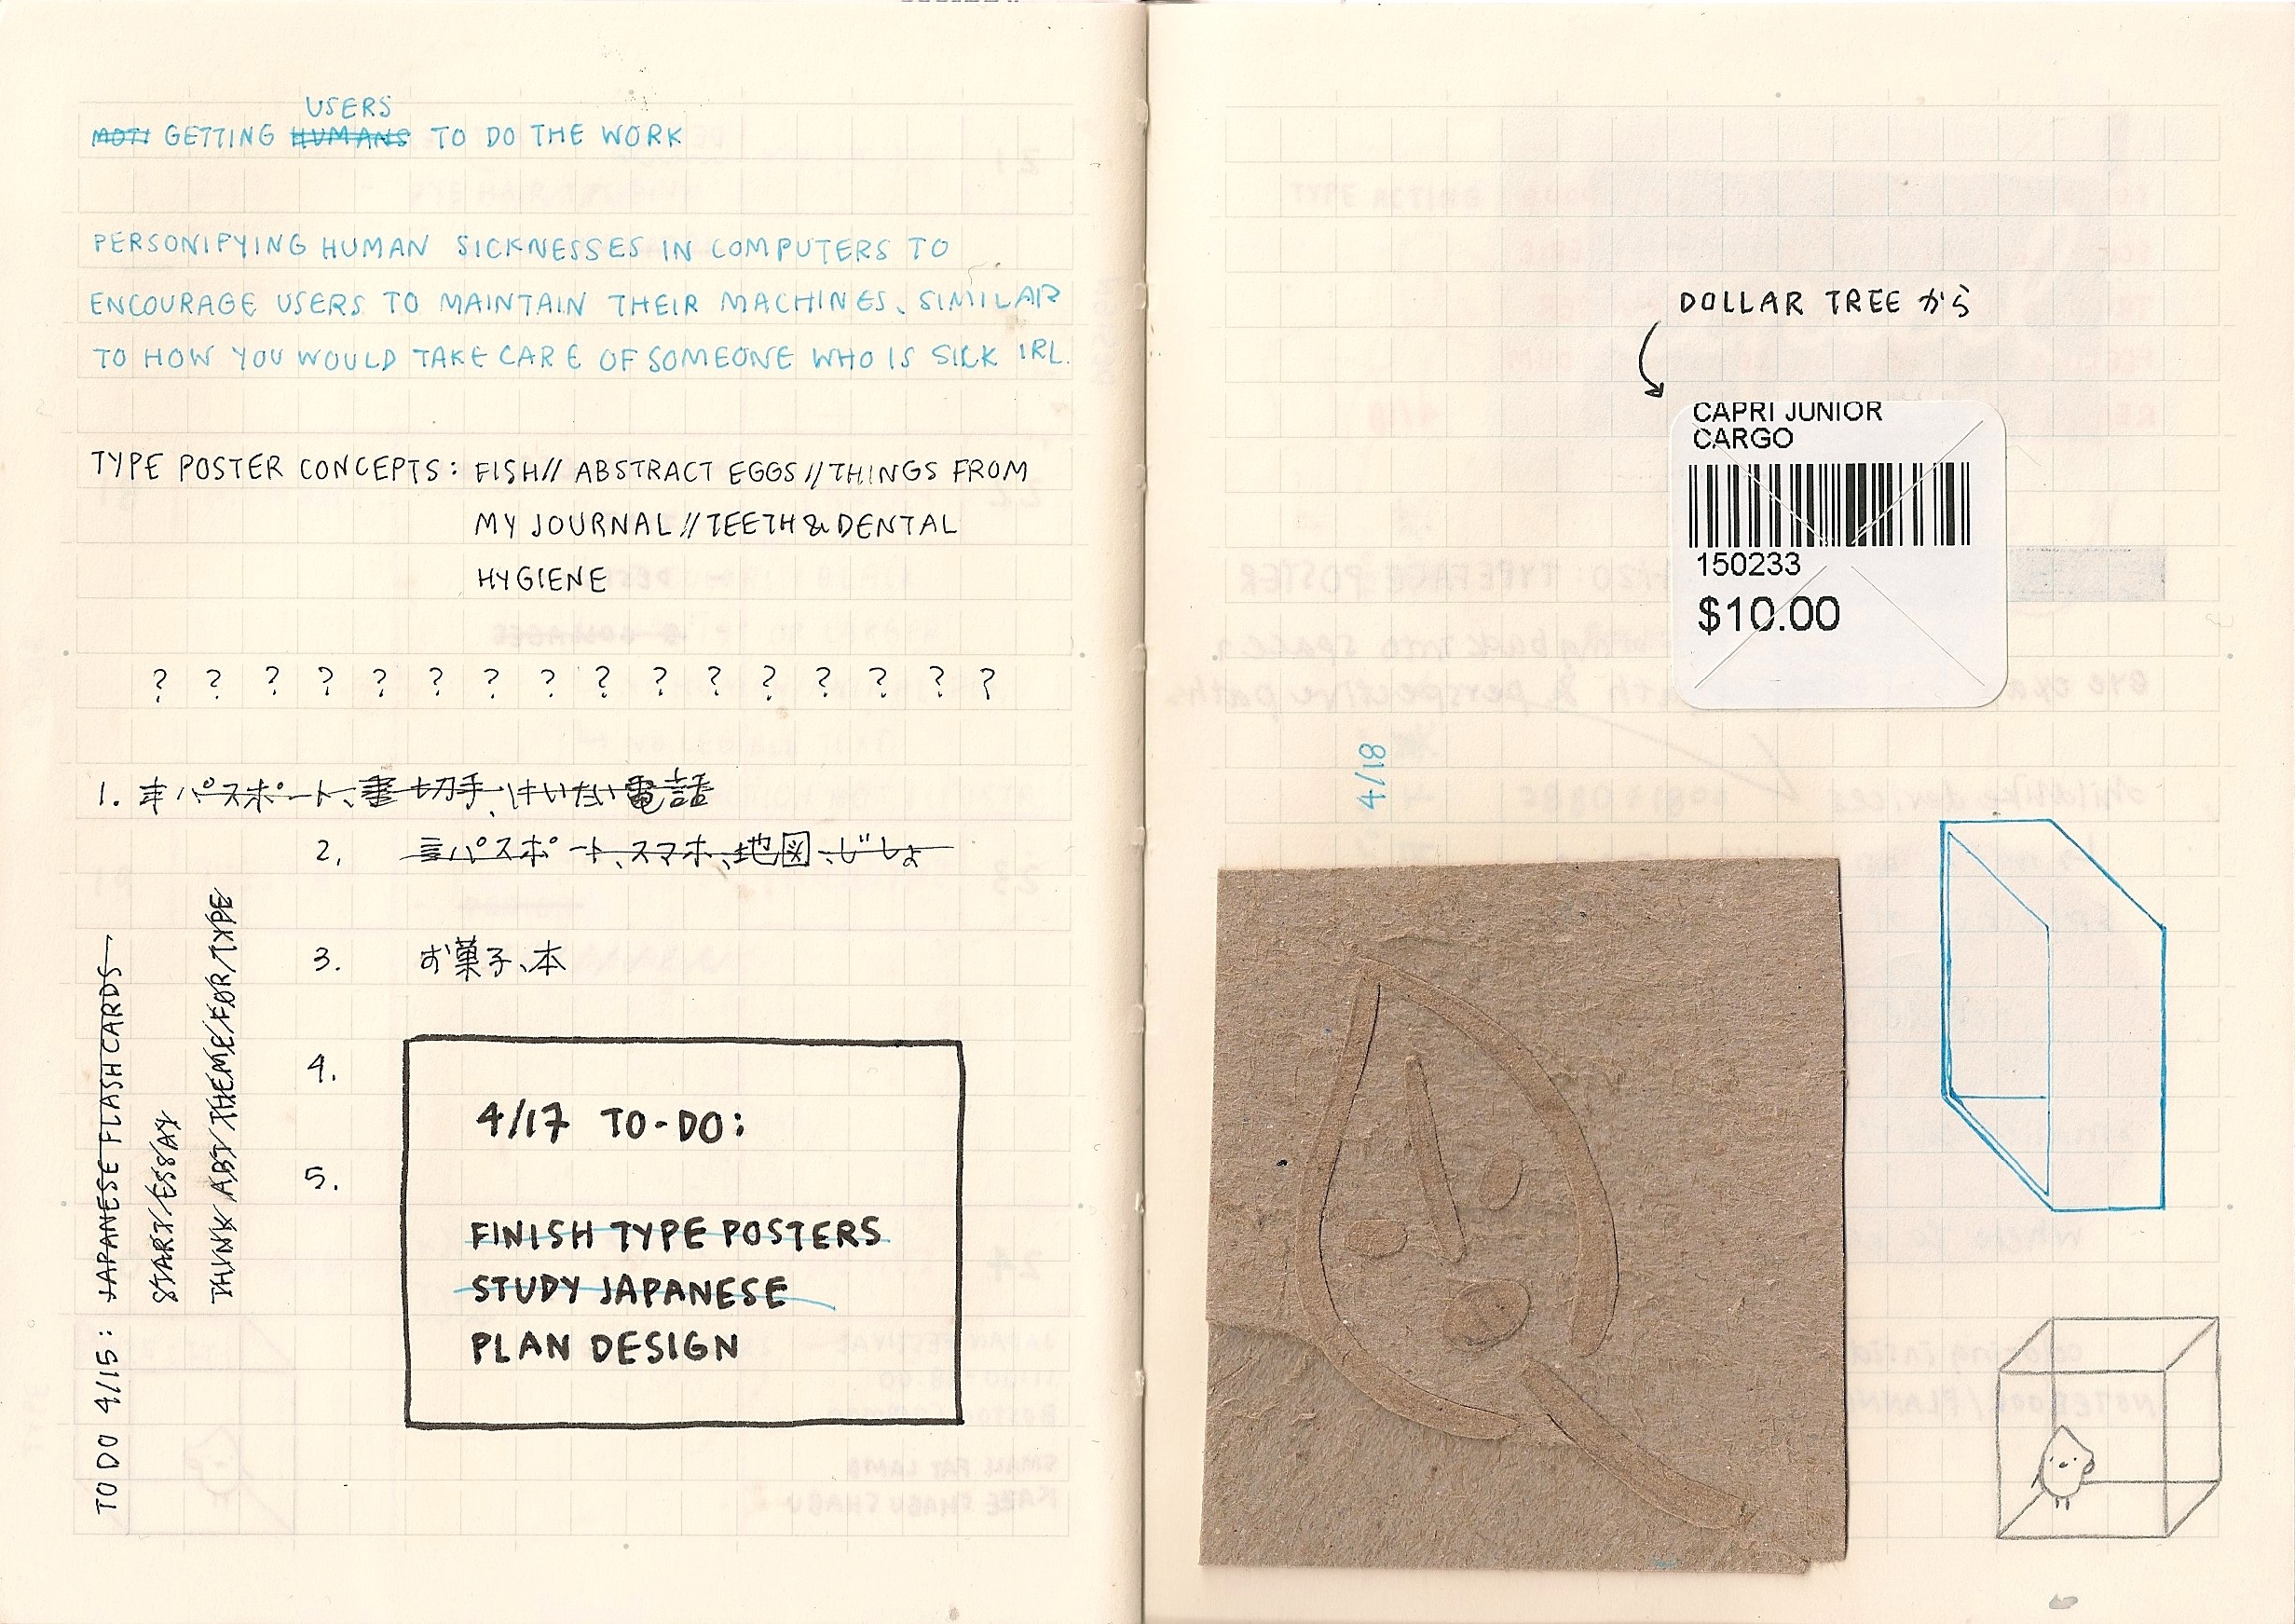 USERS
MOTI GETTING HUMANS TO DO THE WORK
PERSONIFYING HUMAN SICKNESSES IN COMPUTERS TO
ENCOURAGE USERS TO MAINTAIN THEIR MACHINES, SIMILAR
TO HOW YOU WOULD TAKE CARE OF SOMEONE WHO IS SICK IRL.
TYPE POSTER CONCEPTS: FISH // ABSTRACT EGGS // THINGS FROM
MY JOURNAL // TEETH & DENTAL
HYGIENE
? ? ? ? ? ? ? ? ? ? ? ? ? ? ? ?
1. パスポート、切手、けいたい電話
2. パスポート、スマホ、地図、じしょ
3. お菓子、本
4.
5.
TO DO 4/15: JAPANESE FLASHCARDS
START ESSAY
THINK ABT THEME FOR TYPE
4/17 TO-DO:
FINISH TYPE POSTERS
STUDY JAPANESE
PLAN DESIGN
DOLLAR TREE から
CAPRI JUNIOR
CARGO
150233
$10.00
4/18